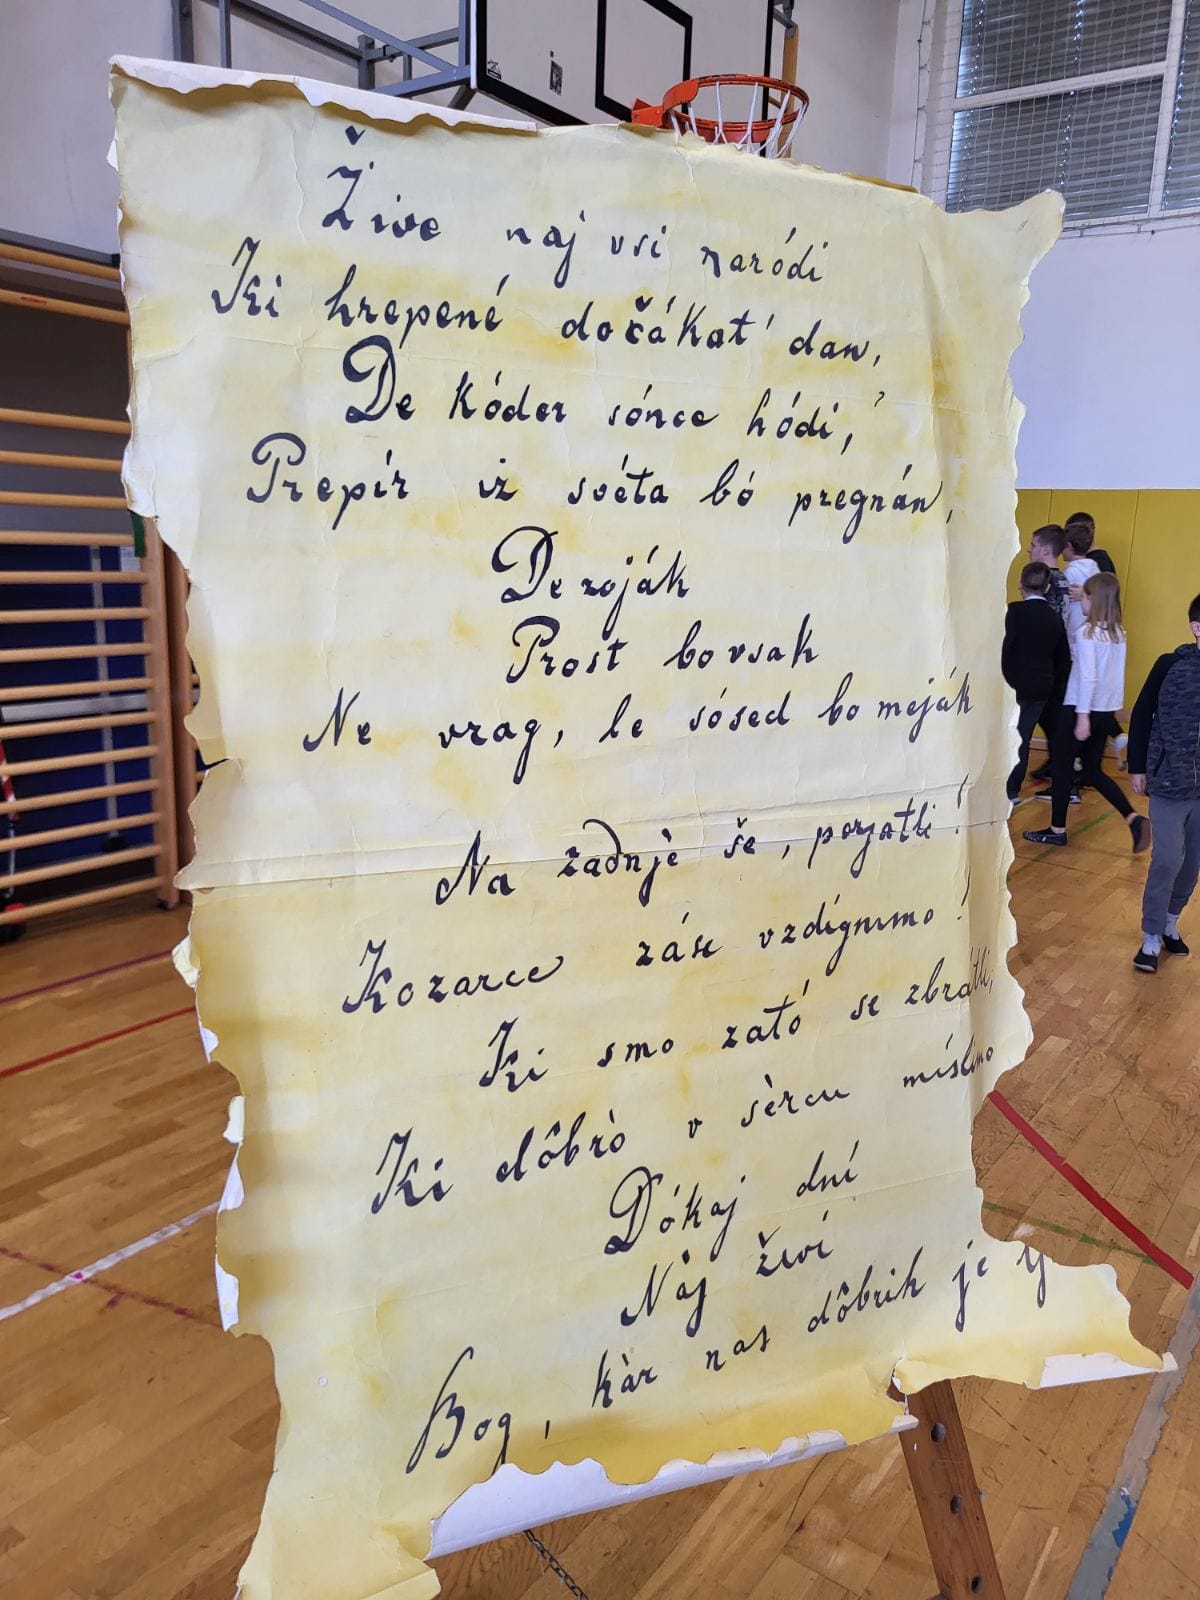 Žive naj vsi naródi
Ki hrepené dočákat' dan,
De kóder sónce hódi,
Prepír iz svéta bó pregnán,
De roják
Prost bo vsak
Ne vrag, le sósed bo meják
Na zadnjè še, perjatli!
Kozarce záse vzdígnemo!
Ki smo zató se zbratli,
Ki dôbrò v sèrcu míslimo
Dókaj dní
Nàj živí
Bog, kàr nas dôbrih je